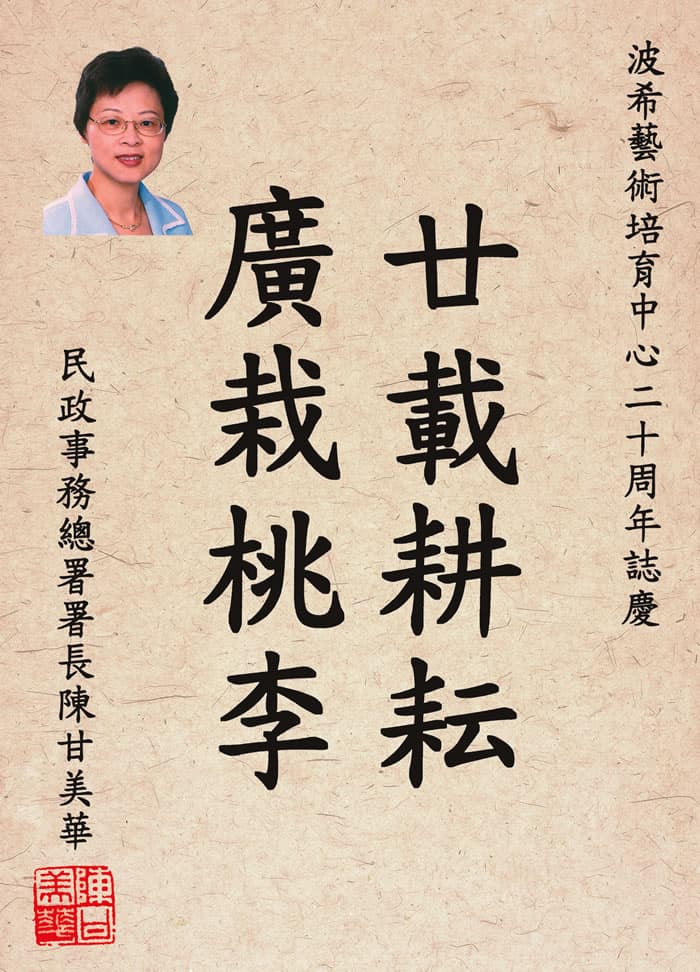 波希藝術培育中心二十周年誌慶
廿載耕耘
廣栽桃李
民政事務總署署長陳甘美華
陳甘
美華